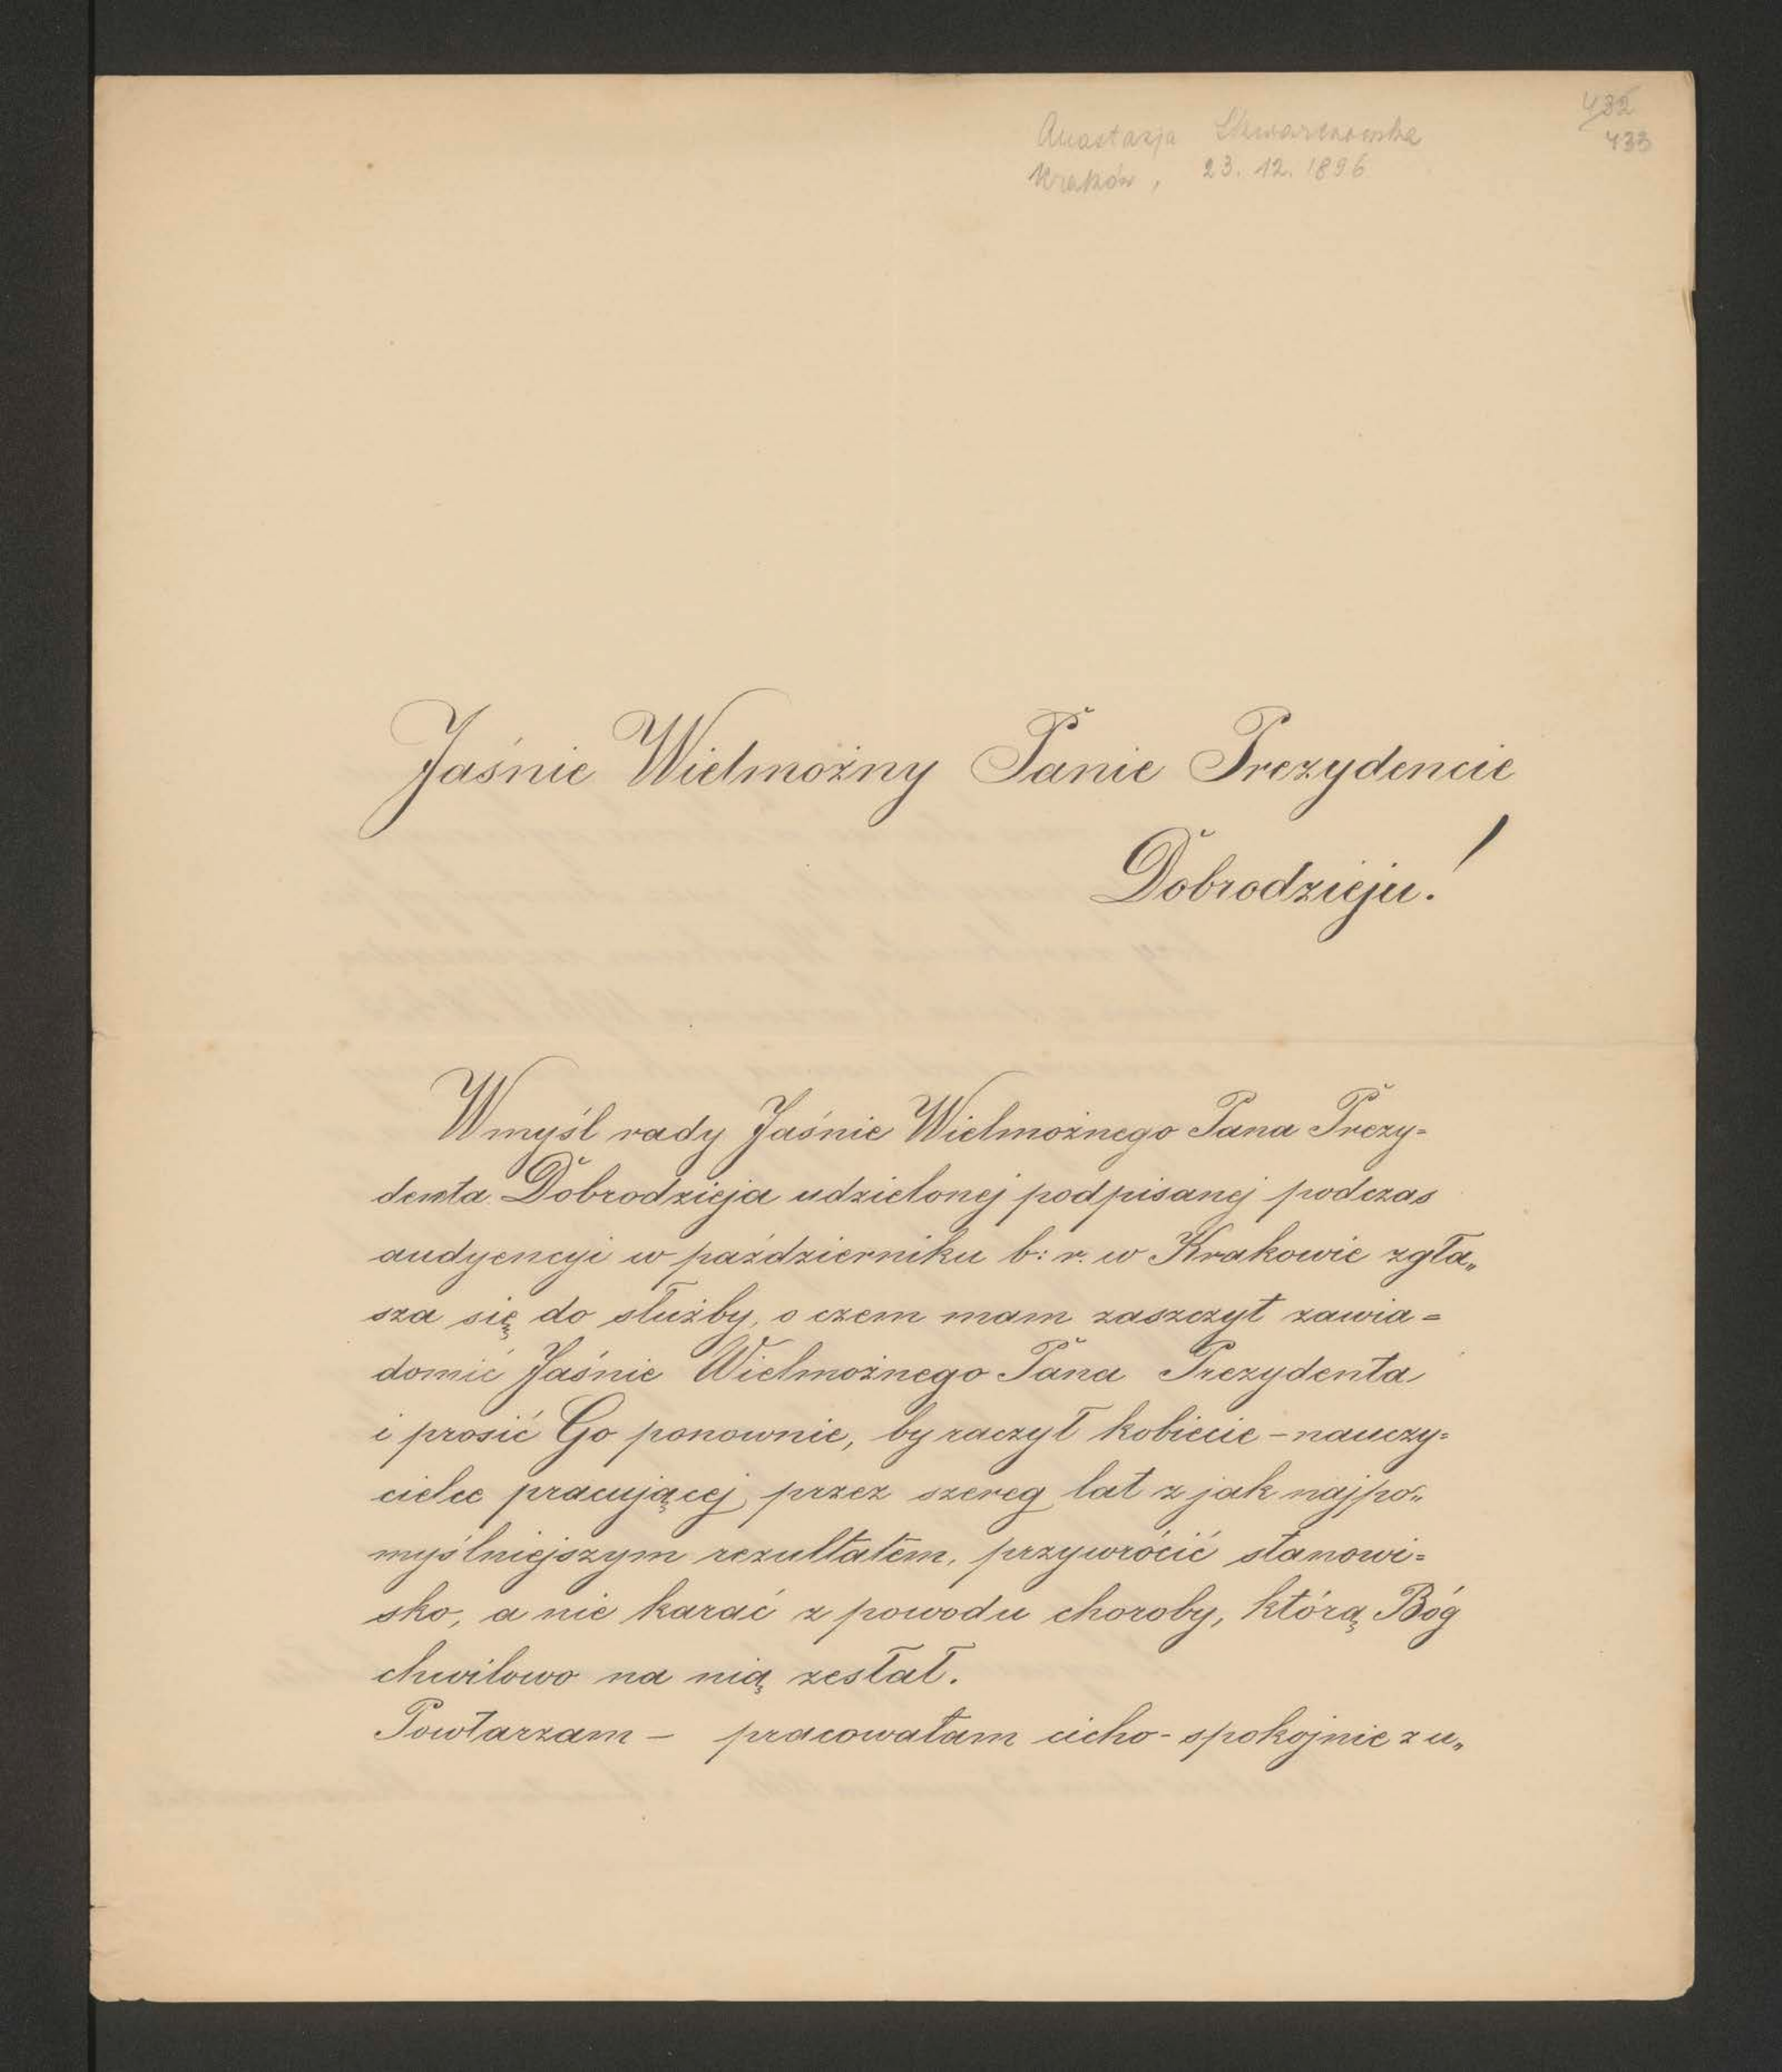 432
433
Anastazja Skwarczowska
Kraków, 23. 12. 1896
Jaśnie Wielmożny Panie Prezydencie
Dobrodzieju!
Wmyśl rady Jaśnie Wielmożnego Pana Prezy=
denta Dobrodzieja udzielonej podpisanej podczas
audyencyi w październiku b: r. w Krakowie zgła„
sza się do służby, o czem mam zaszczyt zawia=
domić Jaśnie Wielmożnego Pana Prezydenta
i prosić Go ponownie, by raczył kobiecie - nauczy=
cielce pracującej przez szereg lat z jak najpo„
myślniejszym rezultatem, przywrócić stanowi=
sko, a nie karać z powodu choroby, którą Bóg
chwilowo na nią zesłał.
Powtarzam - pracowałam cicho - spokojnie z u„